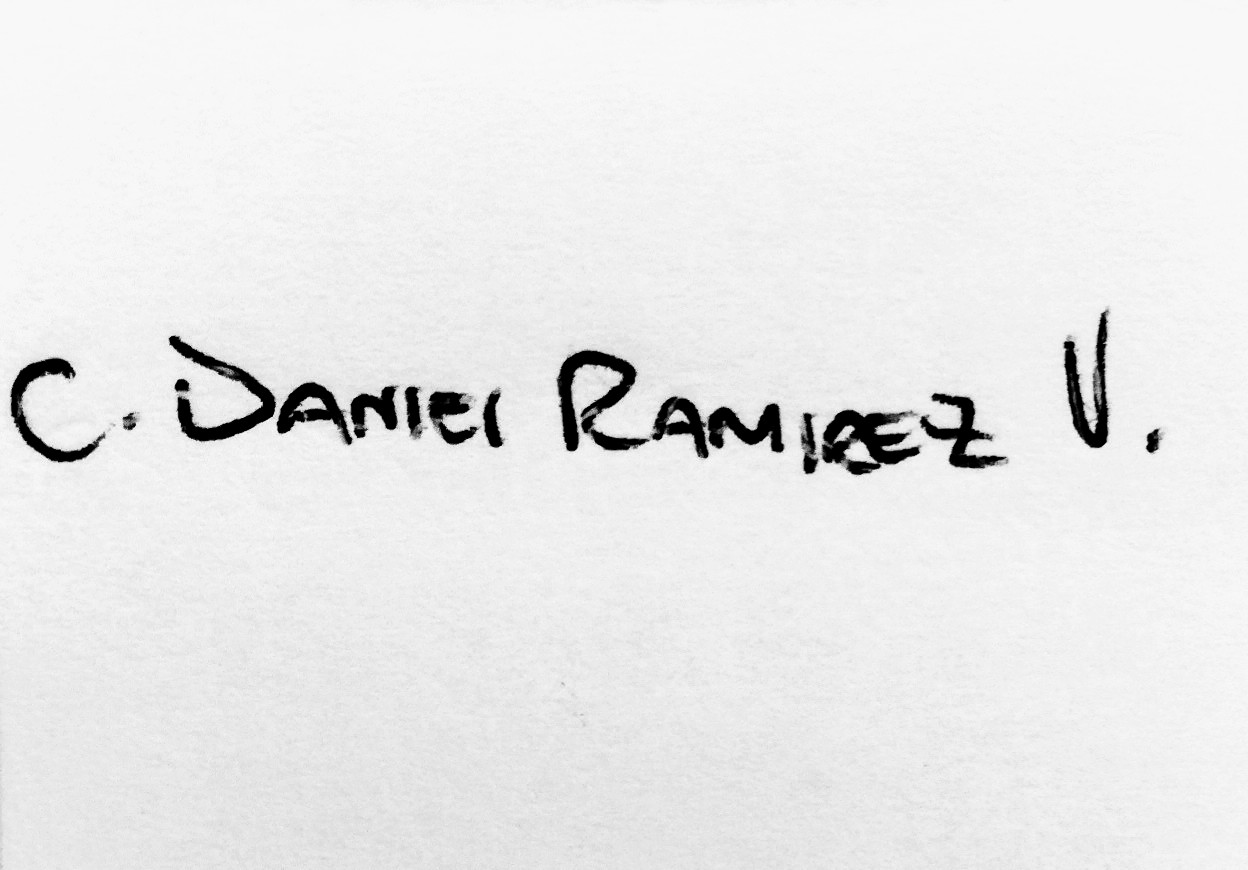 C. DANIEl RAMIREZ V.